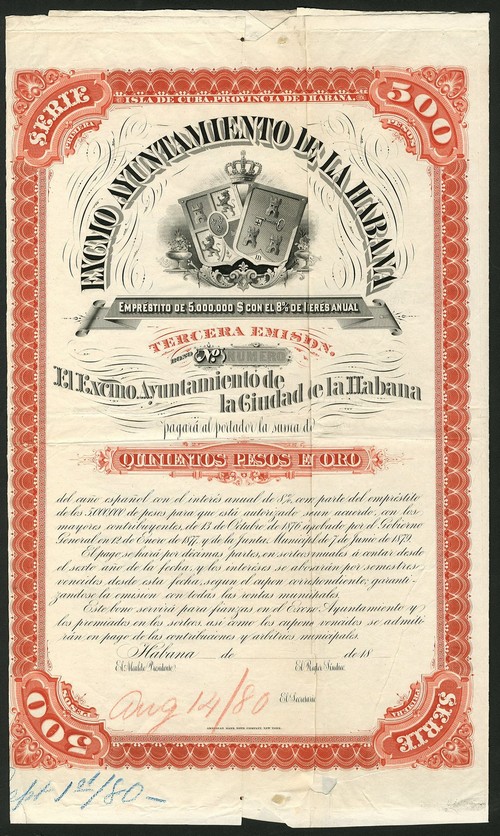 SERIE
PRIMERA
ISLA DE CUBA. PROVINCIA DE HABANA.
500
PESOS
EXCMO AYUNTAMIENTO DE LA HABANA
EMPRÉSTITO DE 5.000.000 $ CON EL 8% DE I ERES ANUAL
TERCERA EMISDN.
BONO Nº NUMERO.
El Excmo. Ayuntamiento de
la Ciudad de la Habana
pagará al portador la suma de
QUINIENTOS PESOS E ORO
del cuño español con el interés anual de 8% con parte del empréstito
de $ 5.000.000 de pesos para que está autorizado seun acuerdo con los
mayores contribuyentes, de 13 de Octubre de 1876 apobado por el Gobierno
General en 12 de Enero de 1877, y de la Junta Municipl de 7 de Junio de 1879.
El pago se hará por décimas partes, en sorteos anuales á contar desde
el sexto año de la fecha, y los intereses se abonarán por semestres
vencidos desde esta fecha, segun el cupon correspondiente, garanti-
zandose la emision con todas las rentas municipales.
Este bono servirá para fianzas en el Excmo Ayuntamiento y
los premiados en los sorteos, así como los cupones vencidos se admiti-
rán en pago de las contribuciones y arbitrios municipales.
Habana de de 18
El Alcalde Presidente
El Regidor Síndico
El Secretario
Aug 14/80
AMERICAN BANK NOTE COMPANY, NEW YORK.
500
PESOS
SERIE
PRIMERA
ept 1st/80-